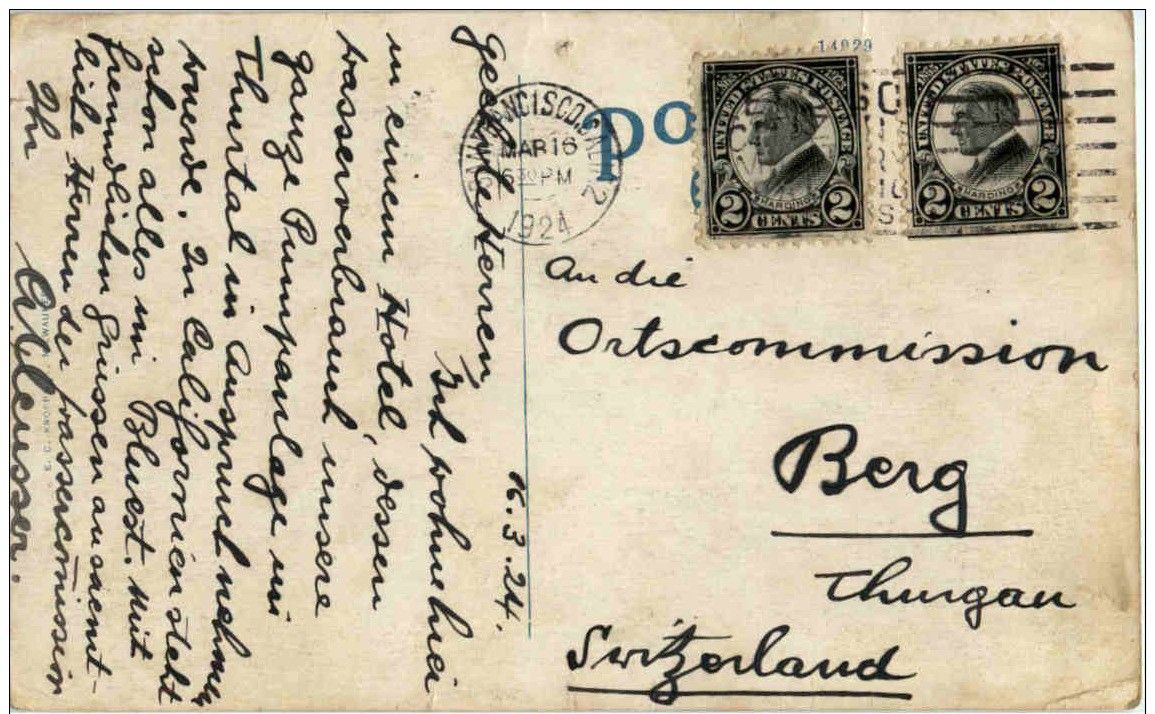 16.3.24.
Geehrte Herren
Ich wohne hier
in einem Hotel, dessen
Wasserverbrauch unsere
ganze Pumpanlage im
Thurtal in Anspruch nehmen
würde. In Californien steht
schon alles in Bluest. Mit
freundlichen Grüssen an sämt-
liche Herren der Wassercomission
Ihr
14929
Po
SAN FRANCISCO, CAL. 2
MAR 16
6 30 PM
1924
UNITED STATES POSTAGE
HARDING
2 CENTS 2
UNITED STATES POSTAGE
HARDING
2 CENTS 2
An die
Ortscommission
Berg
Thurgau
Switzerland